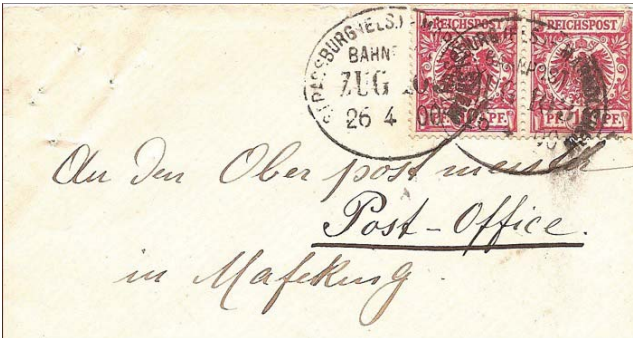 STRASSBURG (ELS.)
BAHN
ZUG
26 4 00
REICHSPOST
REICHSPOST
PF 10 PF.
PF 10 PF.
An den Oberpostmeister
Post-Office.
in Mafeking.